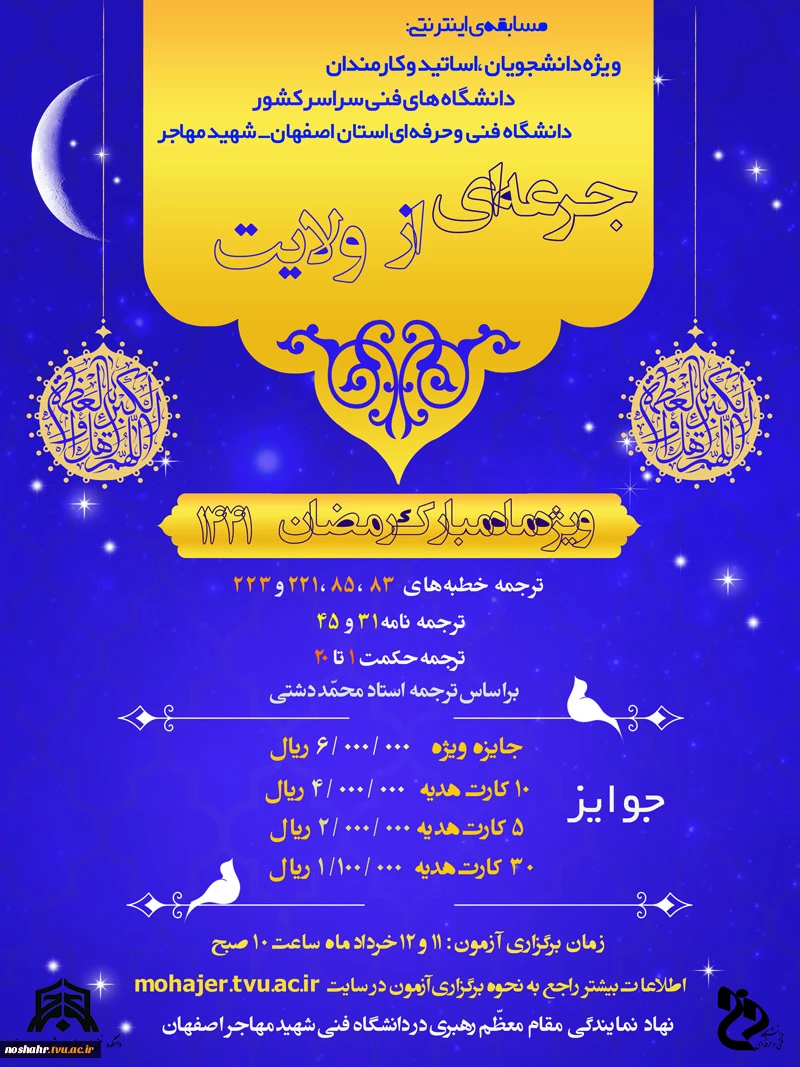 مسابقه‌ی اینترنتی:
ویژه دانشجویان، اساتید و کارمندان
دانشگاه های فنی سراسر کشور
دانشگاه فنی و حرفه ای استان اصفهان_ شهید مهاجر
جرعه‌ای از ولایت
ویژه ماه مبارک رمضان ۱۴۴۱
ترجمه خطبه های ۸۳، ۸۵، ۲۲۱ و ۲۲۳
ترجمه نامه ۳۱ و ۴۵
ترجمه حکمت ۱ تا ۲۰
براساس ترجمه استاد محمّد دشتی
جایزه ویژه ۶/۰۰۰/۰۰۰ ریال
۱۰ کارت هدیه ۴/۰۰۰/۰۰۰ ریال
جوایز
۵ کارت هدیه ۲/۰۰۰/۰۰۰ ریال
۳۰ کارت هدیه ۱/۱۰۰/۰۰۰ ریال
زمان برگزاری آزمون: ۱۱ و ۱۲ خرداد ماه ساعت ۱۰ صبح
اطلاعات بیشتر راجع به نحوه برگزاری آزمون در سایت mohajer.tvu.ac.ir
نهاد نمایندگی مقام معظّم رهبری در دانشگاه فنی شهید مهاجر اصفهان
noshahr.tvu.ac.ir